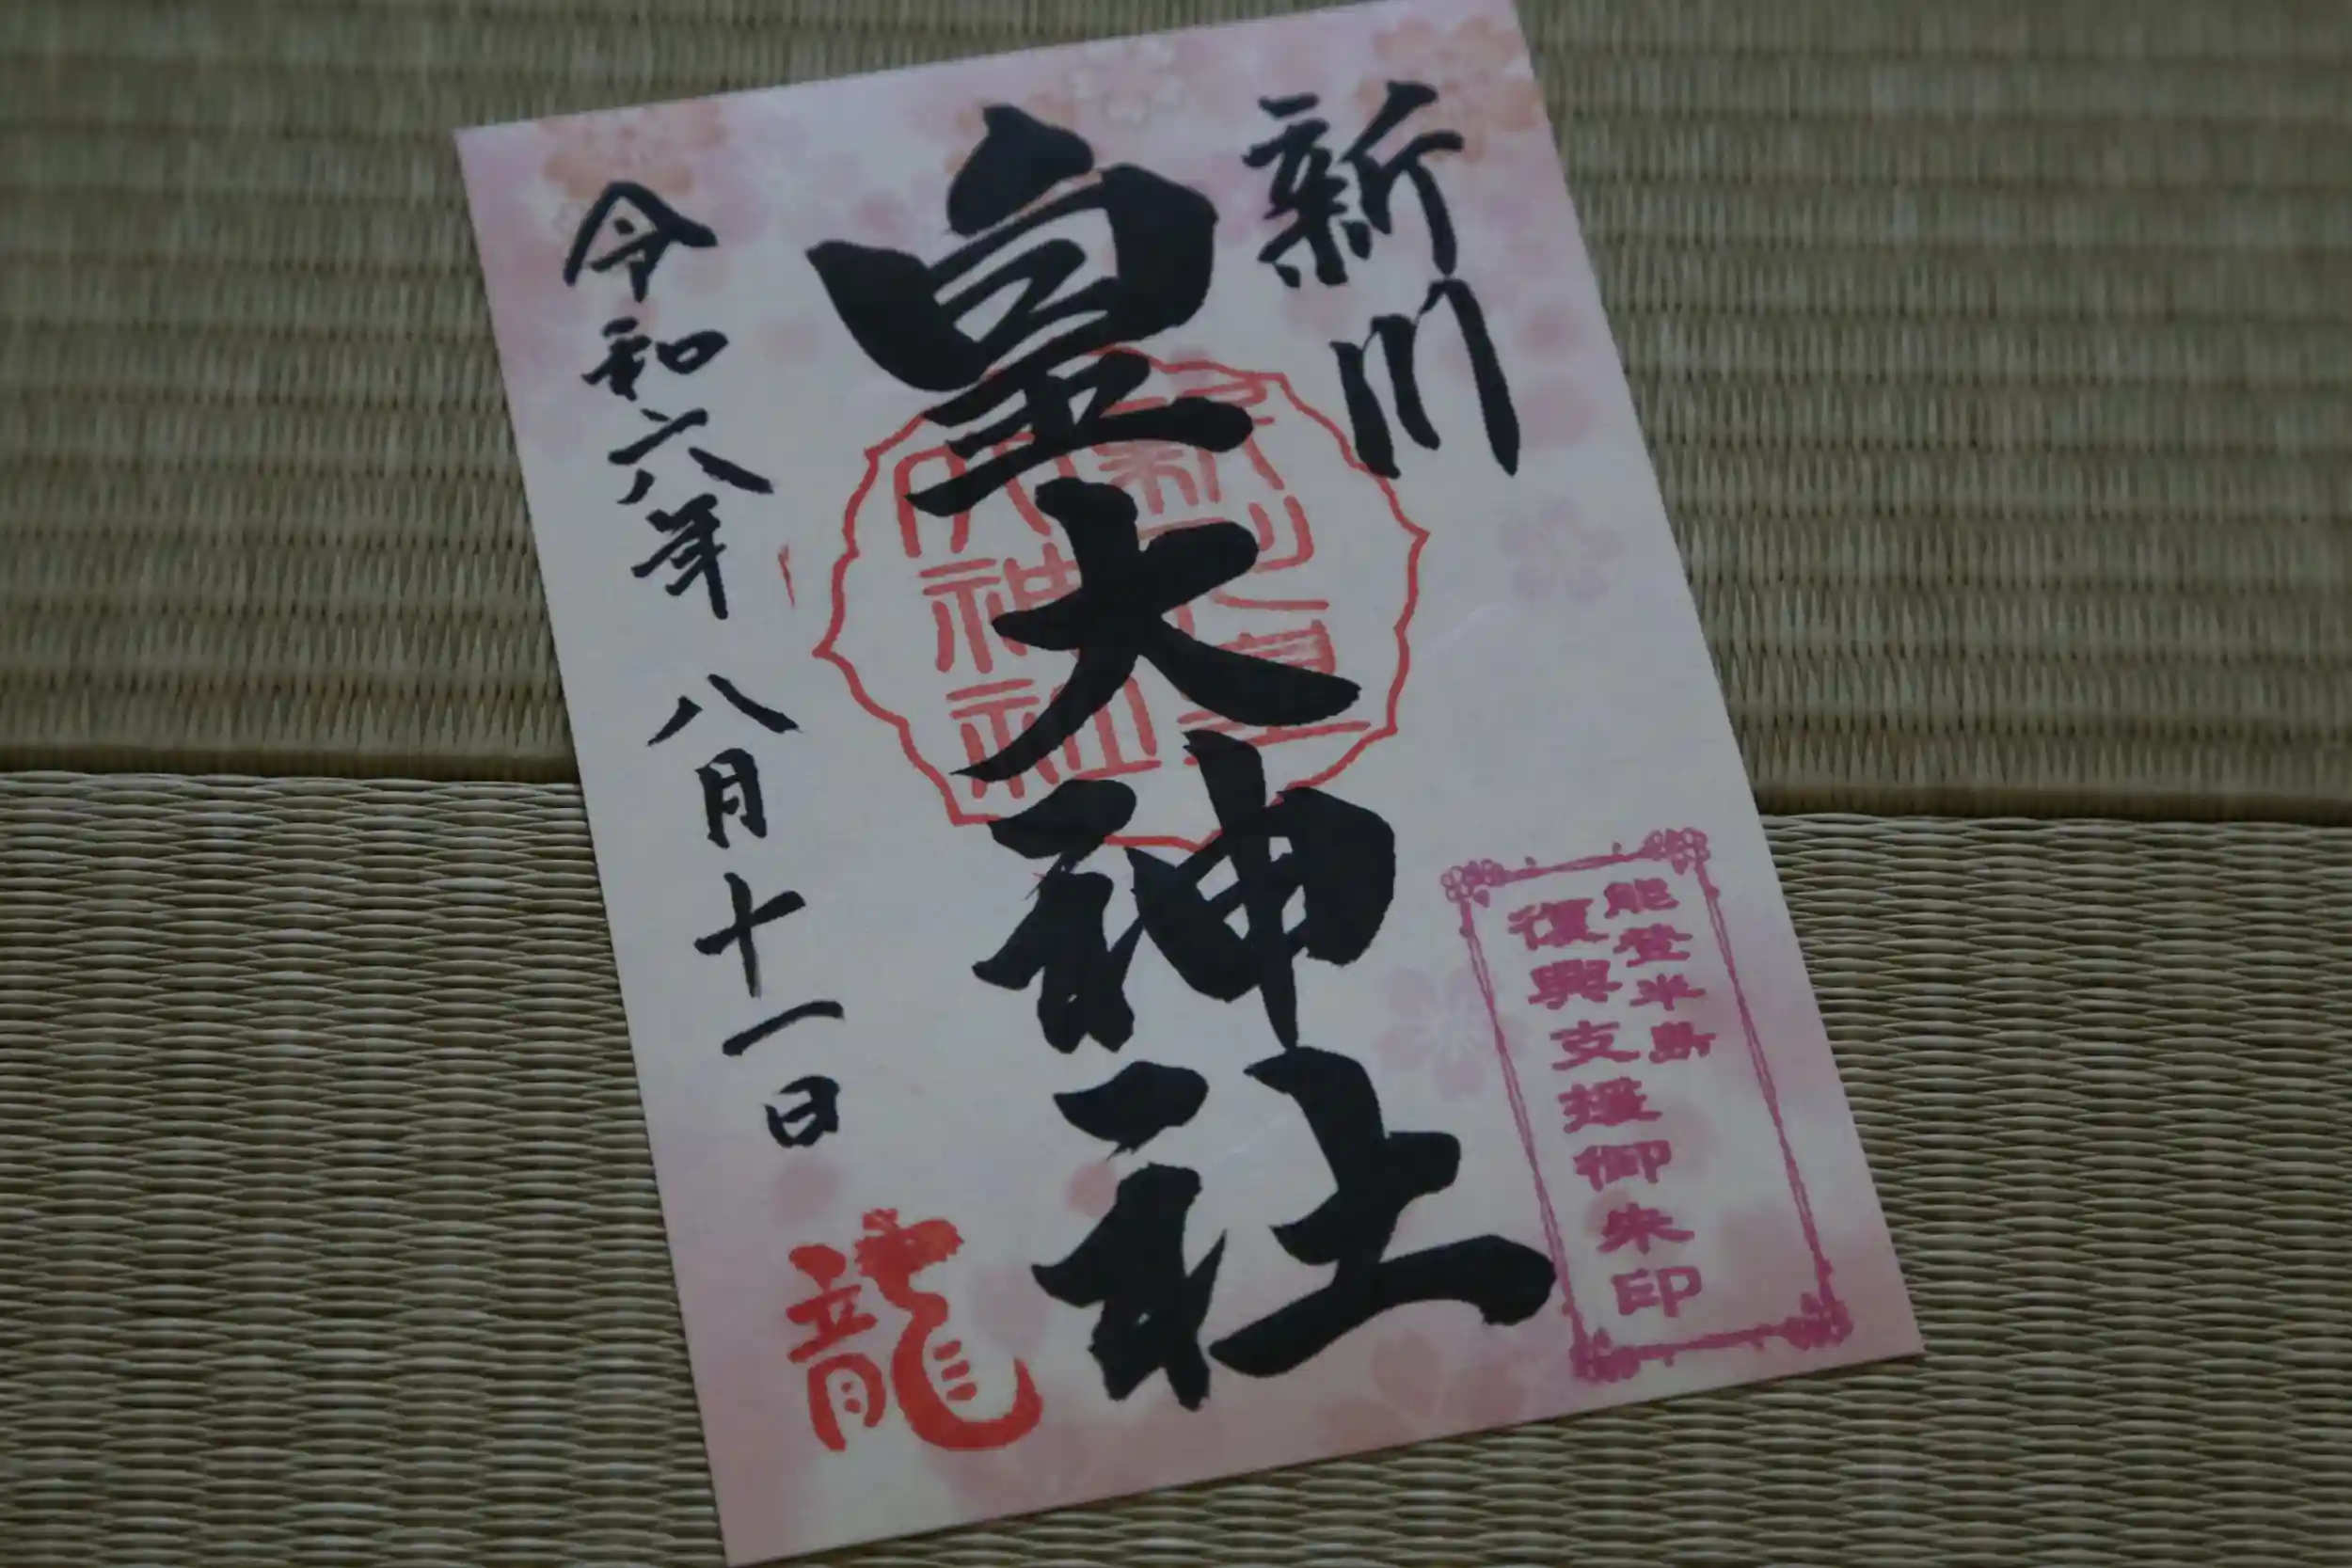 新川
皇大神社
新川皇大神社
令和六年 八月十一日
龍
能登半島
復興支援御朱印